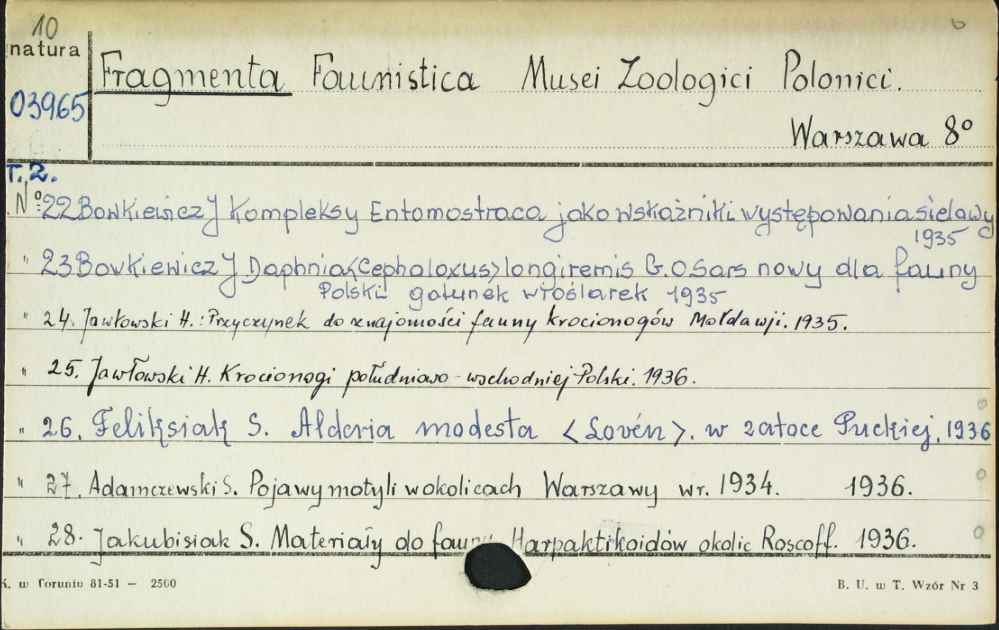 10
natura
03965
6
Fragmenta Faunistica Musei Zoologici Polonici.
Warszawa 8°
T. 2.
N°: 22 Bowkiewicz J Kompleksy Entomostraca jako wskaźniki występowania sielawy
1935
" 23 Bowkiewicz J Daphnia <Cephaloxus> longiremis G.O.Sars nowy dla fauny
Polski gatunek wioślarek 1935
" 24. Jawłowski H.: Przyczynek do znajomości fauny krocionogów Mołdawji. 1935.
" 25. Jawłowski H. Krocionogi południowo-wschodniej Polski. 1936.
" 26. Feliksiak S. Alderia modesta <Lovén>. w zatoce Puckiej. 1936
" 27. Adamczewski S. Pojawy motyli w okolicach Warszawy w r. 1934. 1936.
" 28. Jakubisiak S. Materiały do fauny Harpaktikoidów okolic Roscoff. 1936.
K. w Toruniu 81-51 — 2500
B. U. w T. Wzór Nr 3